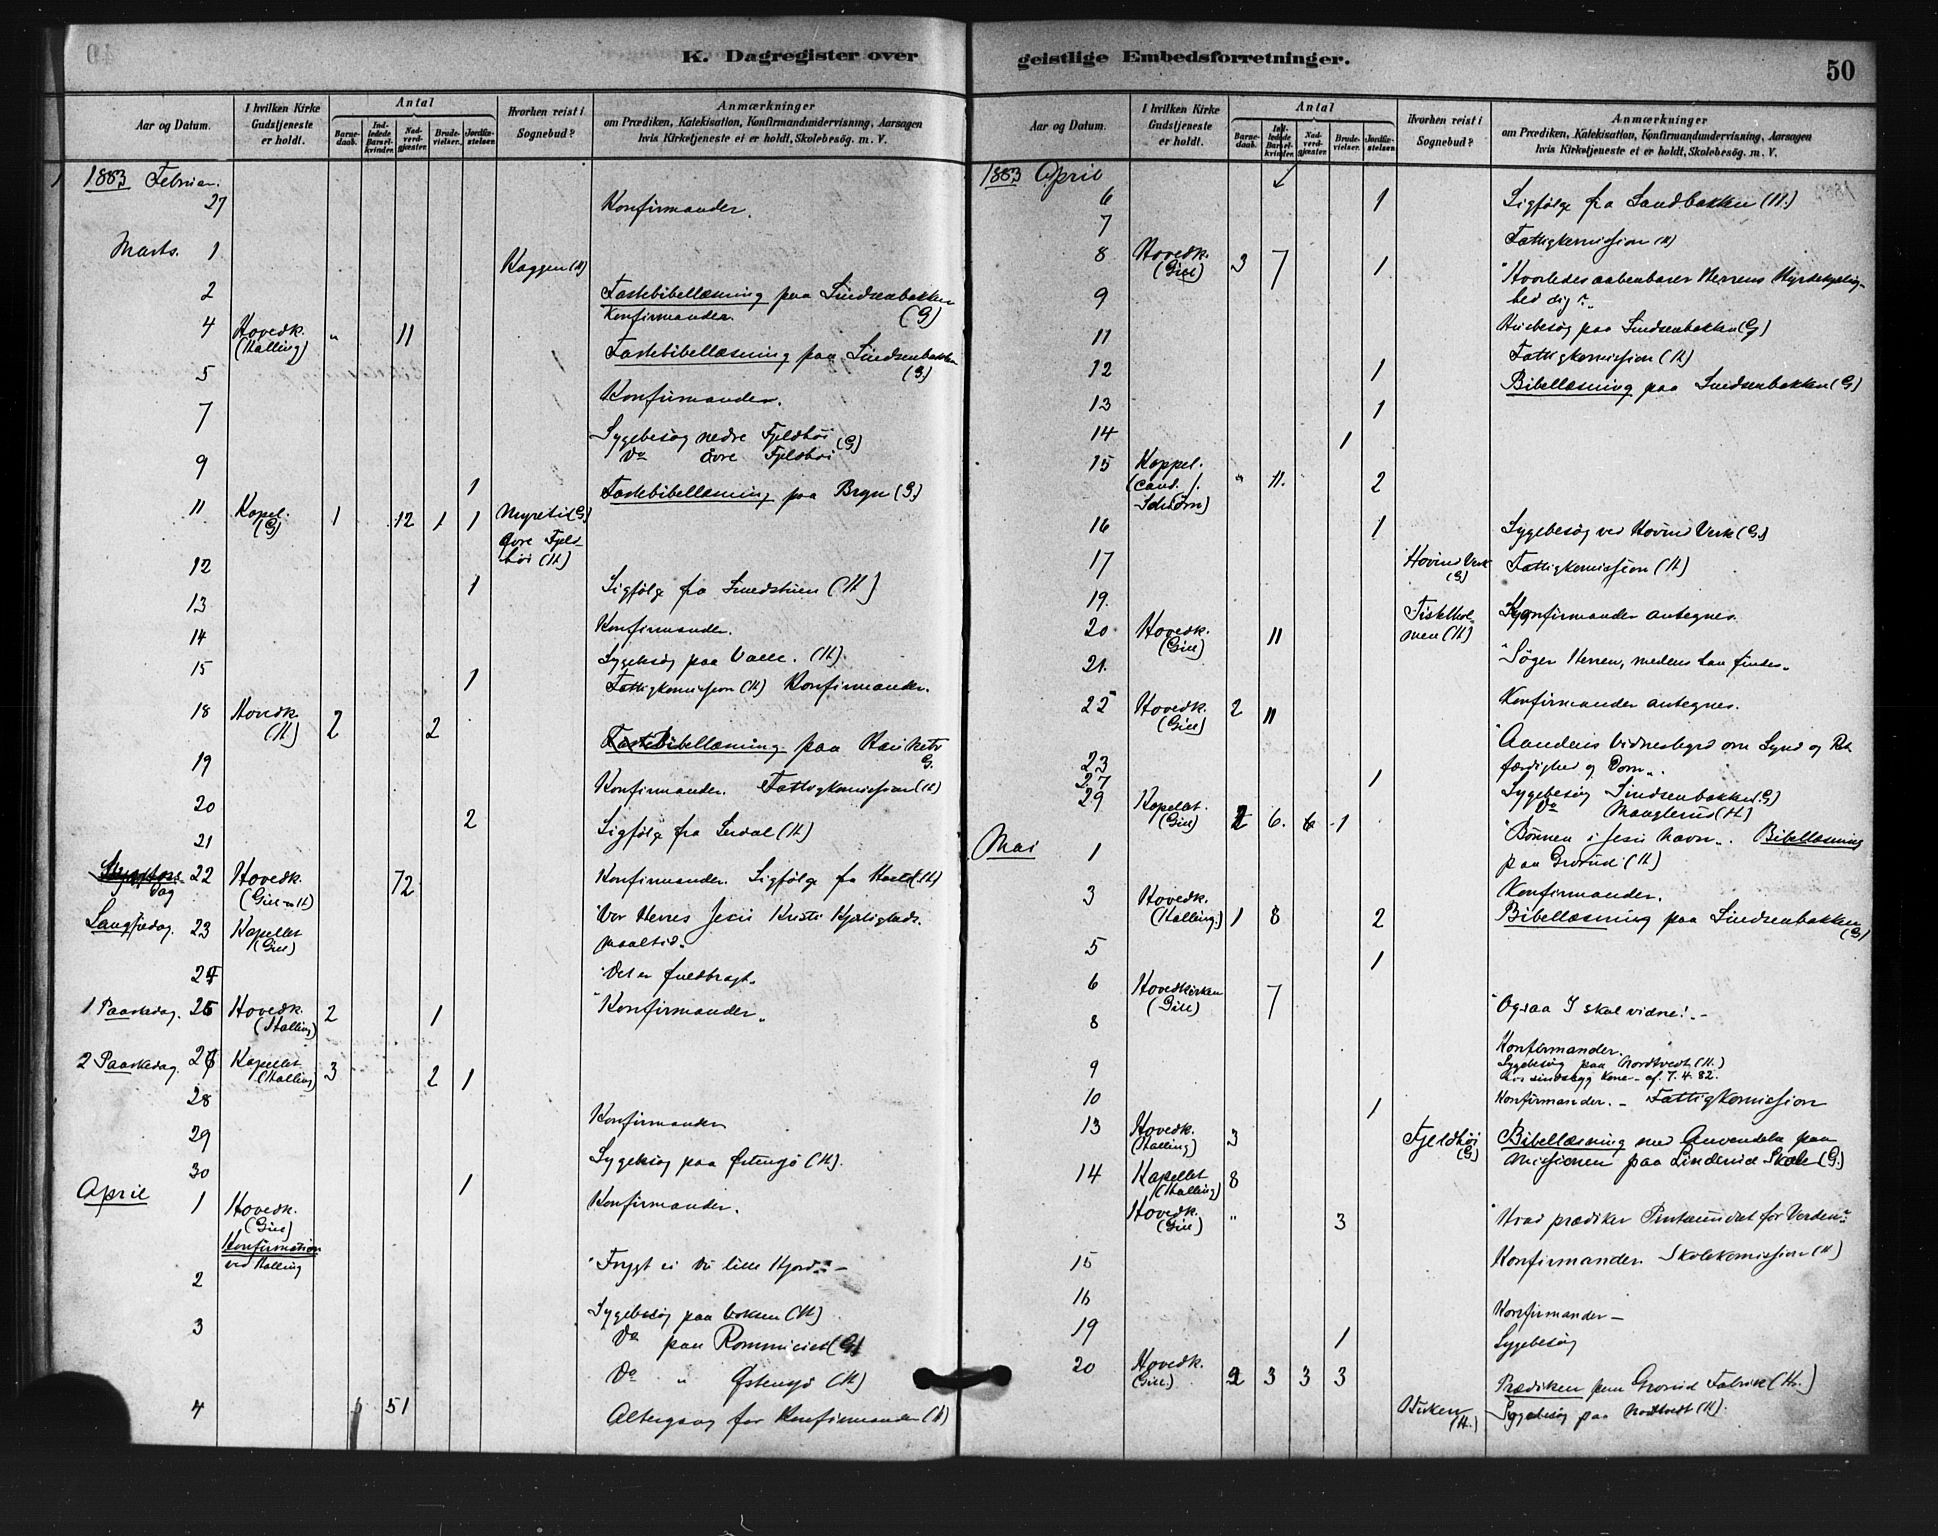 K. Dagregister over
Aar og Datum.
I hvilken Kirke Gudstjeneste er holdt.
Antal
Barne-daab.
Ind-ledede Barsel-kvinder.
Nad-verd-gjæster.
Brude-vielser.
Jordfæ-stelser.
Hvorhen reist i Sognebud?
Anmærkninger
om Prædiken, Katekisation, Konfirmandundervisning, Aarsagen
hvis Kirketjeneste ei er holdt, Skolebesøg. m. V.
1883 Februar.
27 Konfirmander.
Marts. 1 Kaggen (H)
2 Fastebibellæsning paa Lindsenbakken (G)
Konfirmander.
4 Hovedk. (Halling) " 11
Fastebibellæsning paa Lindsenbakken (G.)
5 Konfirmander.
7 Sygebesøg nedre Fjeldhöi (G)
Do övre Fjeldhöi
9 1 Fastebibellæsning paa Bryn (G.)
11 Kapel. (G) 1 12 1 1 (G)
övre Fjeld-höi (H)
12 1 Ligfølge fra (H)
13 Konfirmander.
14 Sygebesøg paa (H)
15 1 Fattigkomission (H) Konfirmander.
18 Hovedk. (H) 2 2
Fastebibellæsning paa G.
19 Konfirmander. Fattigkomission (H)
20 2 Ligfølge fra (H)
21
22 Hovedk. 72 Konfirmander. Ligfølge fra (H)
dag
Langfredag. 23 Kapellet (Gill) "Vor Herres Jesu Kristi Kjærligheds-
maaltid"
24 "Det er fuldbragt"
1 Paaskedag. 25 Hovedk. (Halling) 2 1 Konfirmander
2 Paaskedag. 26 Kapellet (Halling) 3 2 1
28 Konfirmander
29 Sygebesøg paa Østensjø (H).
30 1
April 1 Hovedk. (Gill) Konfirmander.
Konfirmation
ved Halling
"Frygt ei du lille Hjord" –
2 Sygebesøg paa (H)
3 Do paa (G)
Do " Østensjø (H)
4 51 Altergang for Konfirmander (H)
geistlige Embedsforretninger.
50
Aar og Datum.
I hvilken Kirke Gudstjeneste er holdt.
Antal
Barne-daab.
Ind-ledede Barsel-kvinder.
Nad-verd-gjæster.
Brude-vielser.
Jordfæ-stelser.
Hvorhen reist i Sognebud?
Anmærkninger
om Prædiken, Katekisation, Konfirmandundervisning, Aarsagen
hvis Kirketjeneste ei er holdt, Skolebesøg. m. V.
1883 April
6 1 Ligfølge fra Sandbakken (H.)
7 Fattigkomission (H)
8 Hovedk. (Gill) 3 7 1
"Hvorledes aabenbarer Herrens Hyrdekjærlig-
hed dig?"
9 Husbesøg paa Lindsenbakken (G)
11 Fattigkomission (H)
12 1 Bibellæsning paa Lindsenbakken (G)
13 1
14 1
15 Kappel. (Cand. " 11. 2
16 1 Sygebesøg ved Hovind Verk (G.)
17 Hovind Verk (G) Fattigkomission (H)
19. Konfirmander antegnes.
20 Hovedk. (Gill) 11 (H)
21. "Søger Herren, medens han findes"
22 Hovedk. (Gill) 2 11 Konfirmander antegnes.
23 "Aandens Vidnesbyrd om Synd og Ret-
færdighed og Dom".
27 1 Sygebesøg Lindsenbakken (G)
29 Kapellet. (Gill) 2 6. 6 1 Do Manglerud (H)
Mai 1 "Bønnen i Jesu Navn". Bibellæsning
paa Grorud (H)
3 Hovedk. (Halling.) 1 8 2 Konfirmander.
Bibellæsning paa Lindsenbakken (G)
5 1
6 Hovedkirken (Gill) 7 "Ogsaa I skal vidne!" –
8 Konfirmander.
9 Sygebesøg paa Nordtvedt (H.)
hos sindssyg Kone – cf. 7.4.82.
10 1 Konfirmander. – Fattigkomission
13 Hovedk. (Halling) 3 Fjeldhöi (G) Bibellæsning med paa
Missionen paa Linderud Skole (G.)
14 Kapellet (Halling) 8
Hovedk. (Gill) " 3 "Hvad prædiker Pintsundet for Verden"
15 Konfirmander. Skolekomission (H)
16 Konfirmander –
19 1 Sygebesøg
20 Hovedk. (Gill.) 2 3 3 3
Prædiken paa Grorud Fabrik (H.)
(H.) Sygebesøg paa Nordtvedt (H).